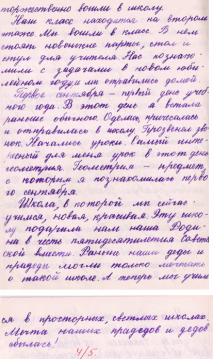 торжественно вошли в школу.
Наш класс находится на втором
этаже. Мы вошли в класс. В нем
стоят новенькие парты, стол и
стул для учителя. Нас познако-
мили с задачами в новом юби-
лейном году и мы отправились домой.
Первое сентября — первый день учеб-
ного года. В этот день я встала
раньше обычного. Оделась, причесалась
и отправилась в школу. Прозвенел зво-
нок. Начались уроки. Самый инте-
ресный для меня урок в этот день
геометрия. Геометрия — предмет,
с которым я познакомилась перво-
го сентября.
Школа, в которой мы сейчас
учимся, новая, красивая. Эту шко-
лу подарила нам наша Роди-
на в честь пятидесятилетия Совет-
ской власти. Раньше наши деды и
прадеды могли только мечтать
о такой школе. А теперь мы учим
ся в просторных, светлых школах.
Мечта наших прадедов и дедов
сбылась!
4/5.